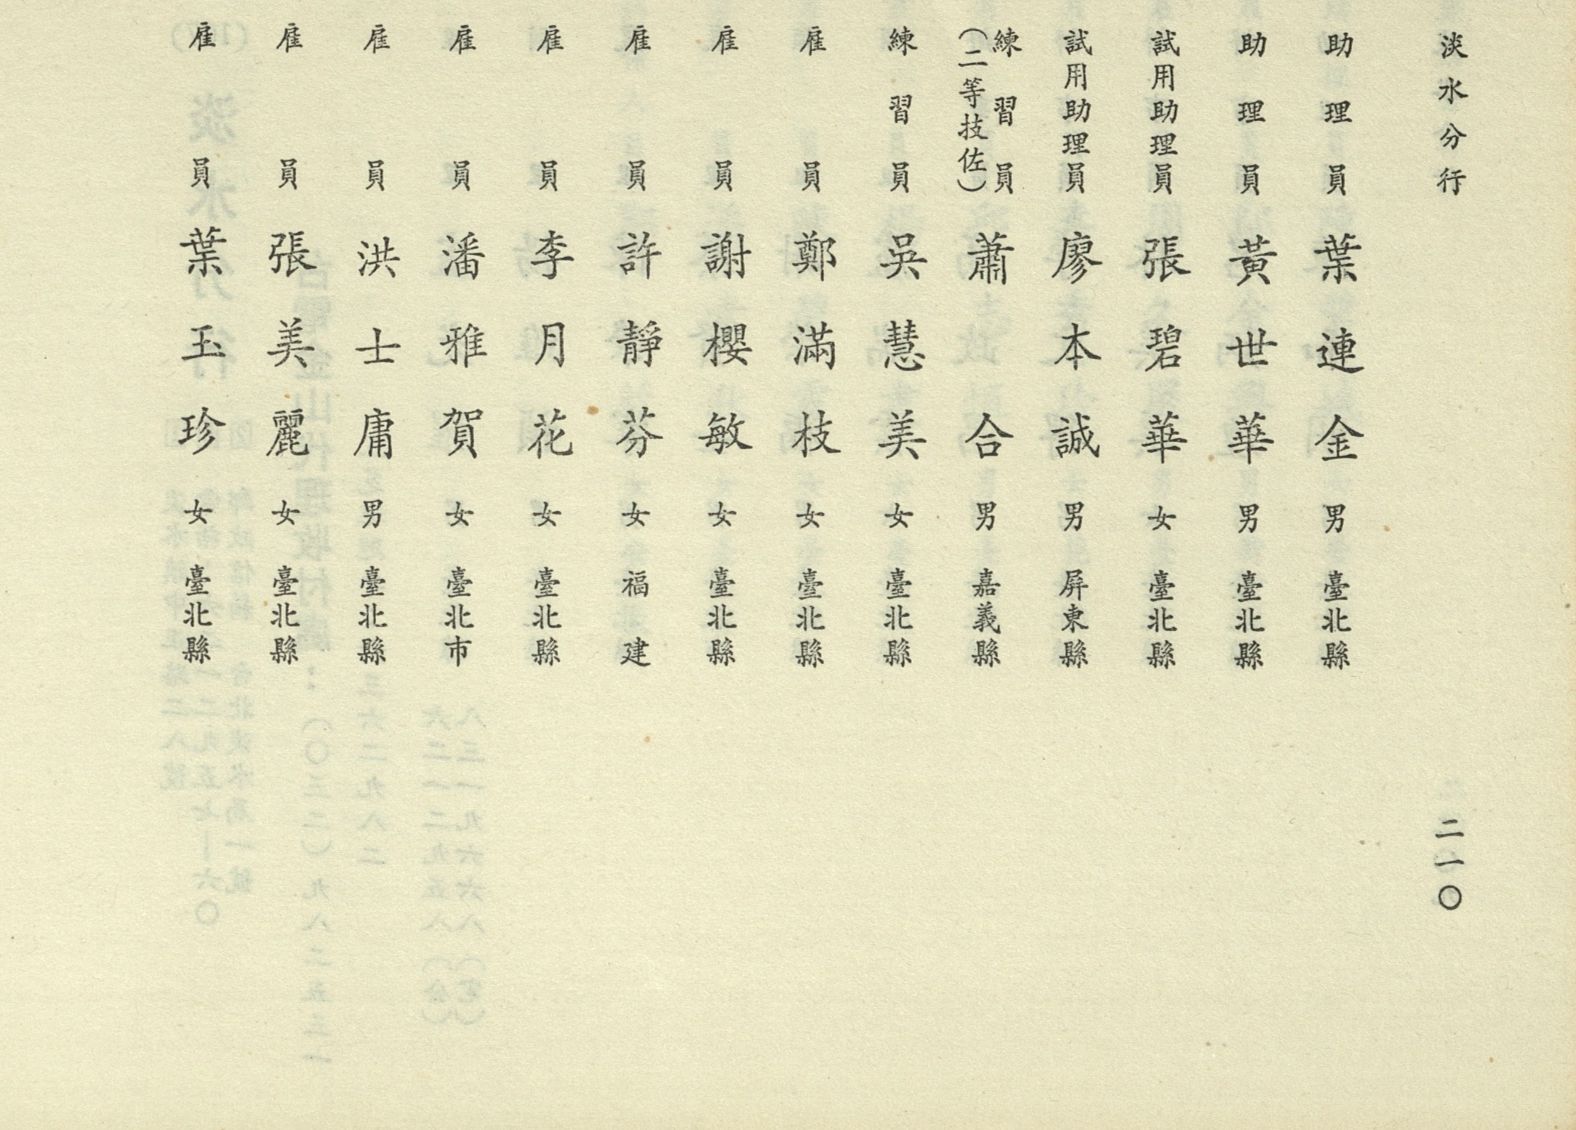 淡水分行
二一〇
助理員 葉連金 男 臺北縣
助理員 黃世華 男 臺北縣
試用助理員 張碧華 女 臺北縣
試用助理員 廖本誠 男 屏東縣
練習員(二等技佐) 蕭合 男 嘉義縣
練習員 吳慧美 女 臺北縣
雇員 鄭滿枝 女 臺北縣
雇員 謝櫻敏 女 臺北縣
雇員 許靜芬 女 福建
雇員 李月花 女 臺北縣
雇員 潘雅賀 女 臺北市
雇員 洪士庸 男 臺北縣
雇員 張美麗 女 臺北縣
雇員 葉玉珍 女 臺北縣